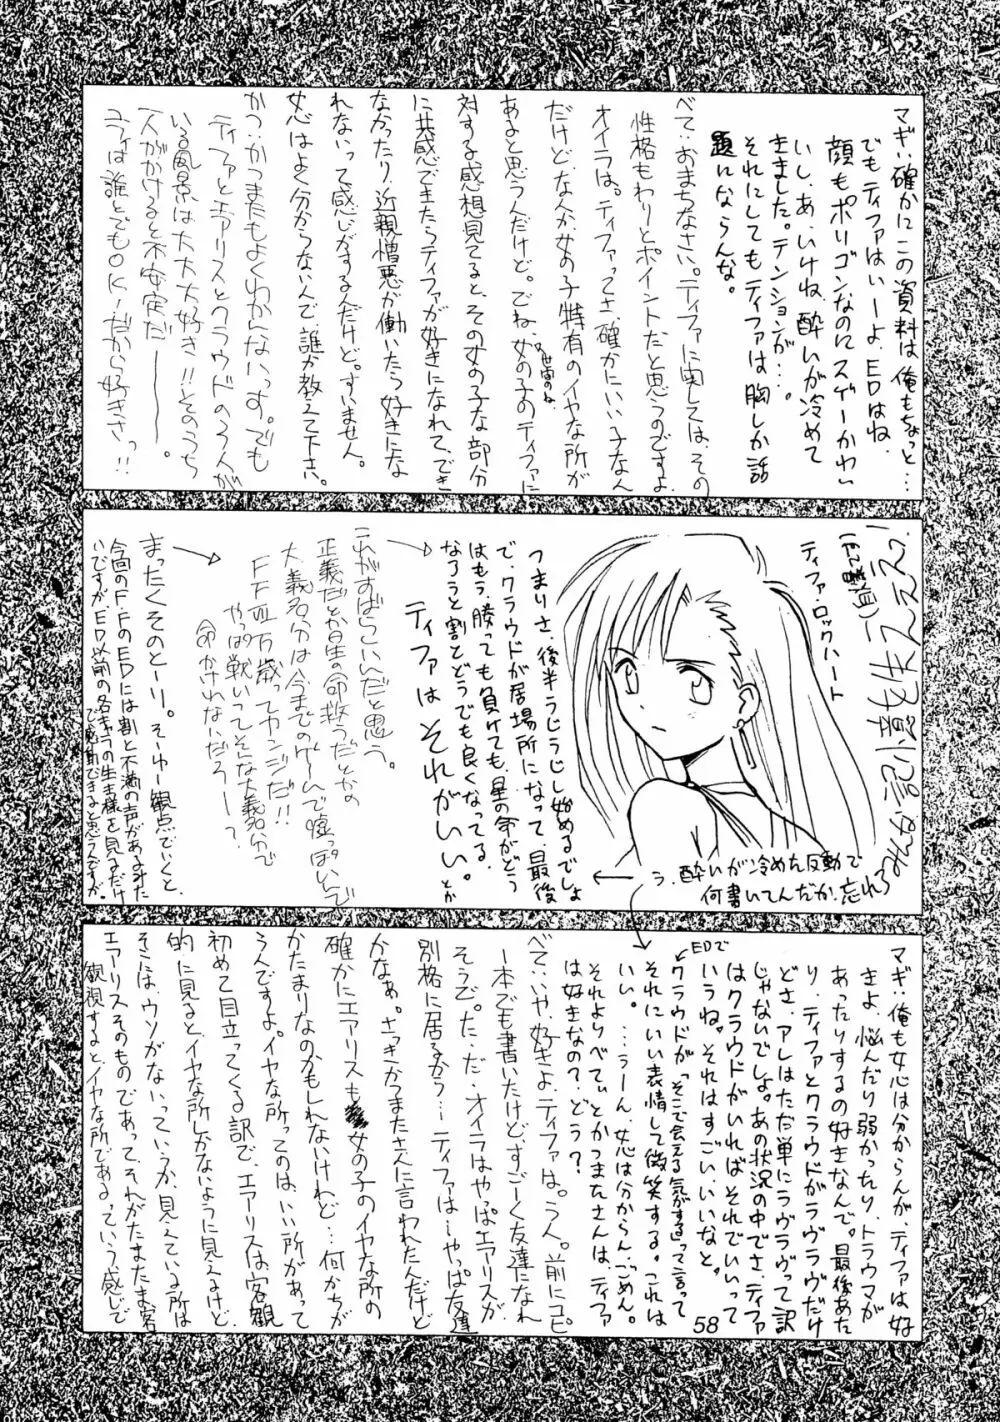 マギ:確かにこの資料は俺もちょっと…
でもティファはいーよ、EDはね、
顔もポリゴンなのにスゲーかわい
いし、あ、いけね、酔いが冷めて
きました。テンションが…
それにしてもティファは胸しか話
題にならんな。
べて:おまちなさい。ティファに関しては、その
性格もわりとポイントだと思うのですよ
オイラは。ティファってさ、確かにいい子なん
だけどなんか女の子特有のイヤな所が
あると思うんだけど。でね、世間のね、女の子のティファに
対する感想見てると、その女の子な部分
に共感できたらティファが好きになれて、でき
なかったり、近親憎悪が働いたら好きにな
れないって感じがするんだけど。すいません。
女心はよく分からないんで誰か教えて下さい。
かつ:かつまたもよくわかんないっす。でも
ティファとエアリスとクラウドの3人が
いる風景は大大大好き!!そのうち
一人がかけると不安定だーーー
ユフィは誰とでもOK!だから好きさっ!!
ティファ・ロックハート
う、酔いが冷めた反動で
何書いてんだか、忘れろ
つまりさ、後半うじうじし始めるでしょ
で、クラウドが居場所になって、最後
はもう、勝っても負けても、星の命がどう
なろうと割とどうでも良くなってる。
ティファは それがいい。とか
これがすばらしいんだと思う。
正義だとか星の命救うだとかの
大義名分は今までのゲームで嘘っぽいんで
FFⅦ万歳ってカンジだ!!
やっぱ戦いってそんな大義名分で
命かけれないだろー?
まったくそのとーり。そーゆー観点でいくと、
今回のFFのEDには割と不満の声があるみた
いですが、ED以前の各キャラの生き様を見るだけ
で納得できると思うんですが。
マギ:俺も女心は分からんが、ティファは好
きよ、悩んだり弱かったり、トラウマが
あったりするの好きなんで。最後あた
り、ティファとクラウドがラヴラヴだけ
どさ、アレはただ単にラヴラヴって訳
じゃないでしょ。あの状況の中でさ、ティファ
はクラウドがいればそれでいいって
いうね。それはすごいいいなと。
EDで
クラウドが「そこで会える気がする」って言って
それにいい表情して微笑する。これは
いい。…うーん、女心は分からん、ごめん。
それよりべてぃとかつまたさんは、ティファ
は好きなの?どう?
べて:いや、好きよ、ティファは。うん。前にコピ
ー本でも書いたけど、すごーく友達になれ
そうで。ただ、オイラはやっぱエアリスが
別格に居るから…ティファはーやっぱ友達
かなぁ。さっきかつまたさんに言われたんだけど
確かにエアリスも女の子のイヤな所の
かたまりなのかもしれないけれど…何かちが
うんですよ。イヤな所ってのは、いい所があって
初めて目立ってくる訳で、エアリスは客観
的に見るとイヤな所しかないように見えるけど、
そこには、ウソがないっていうか、見えている所は
エアリスそのものであって、それがたまたま客
観視するとイヤな所であるっていう感じで
58